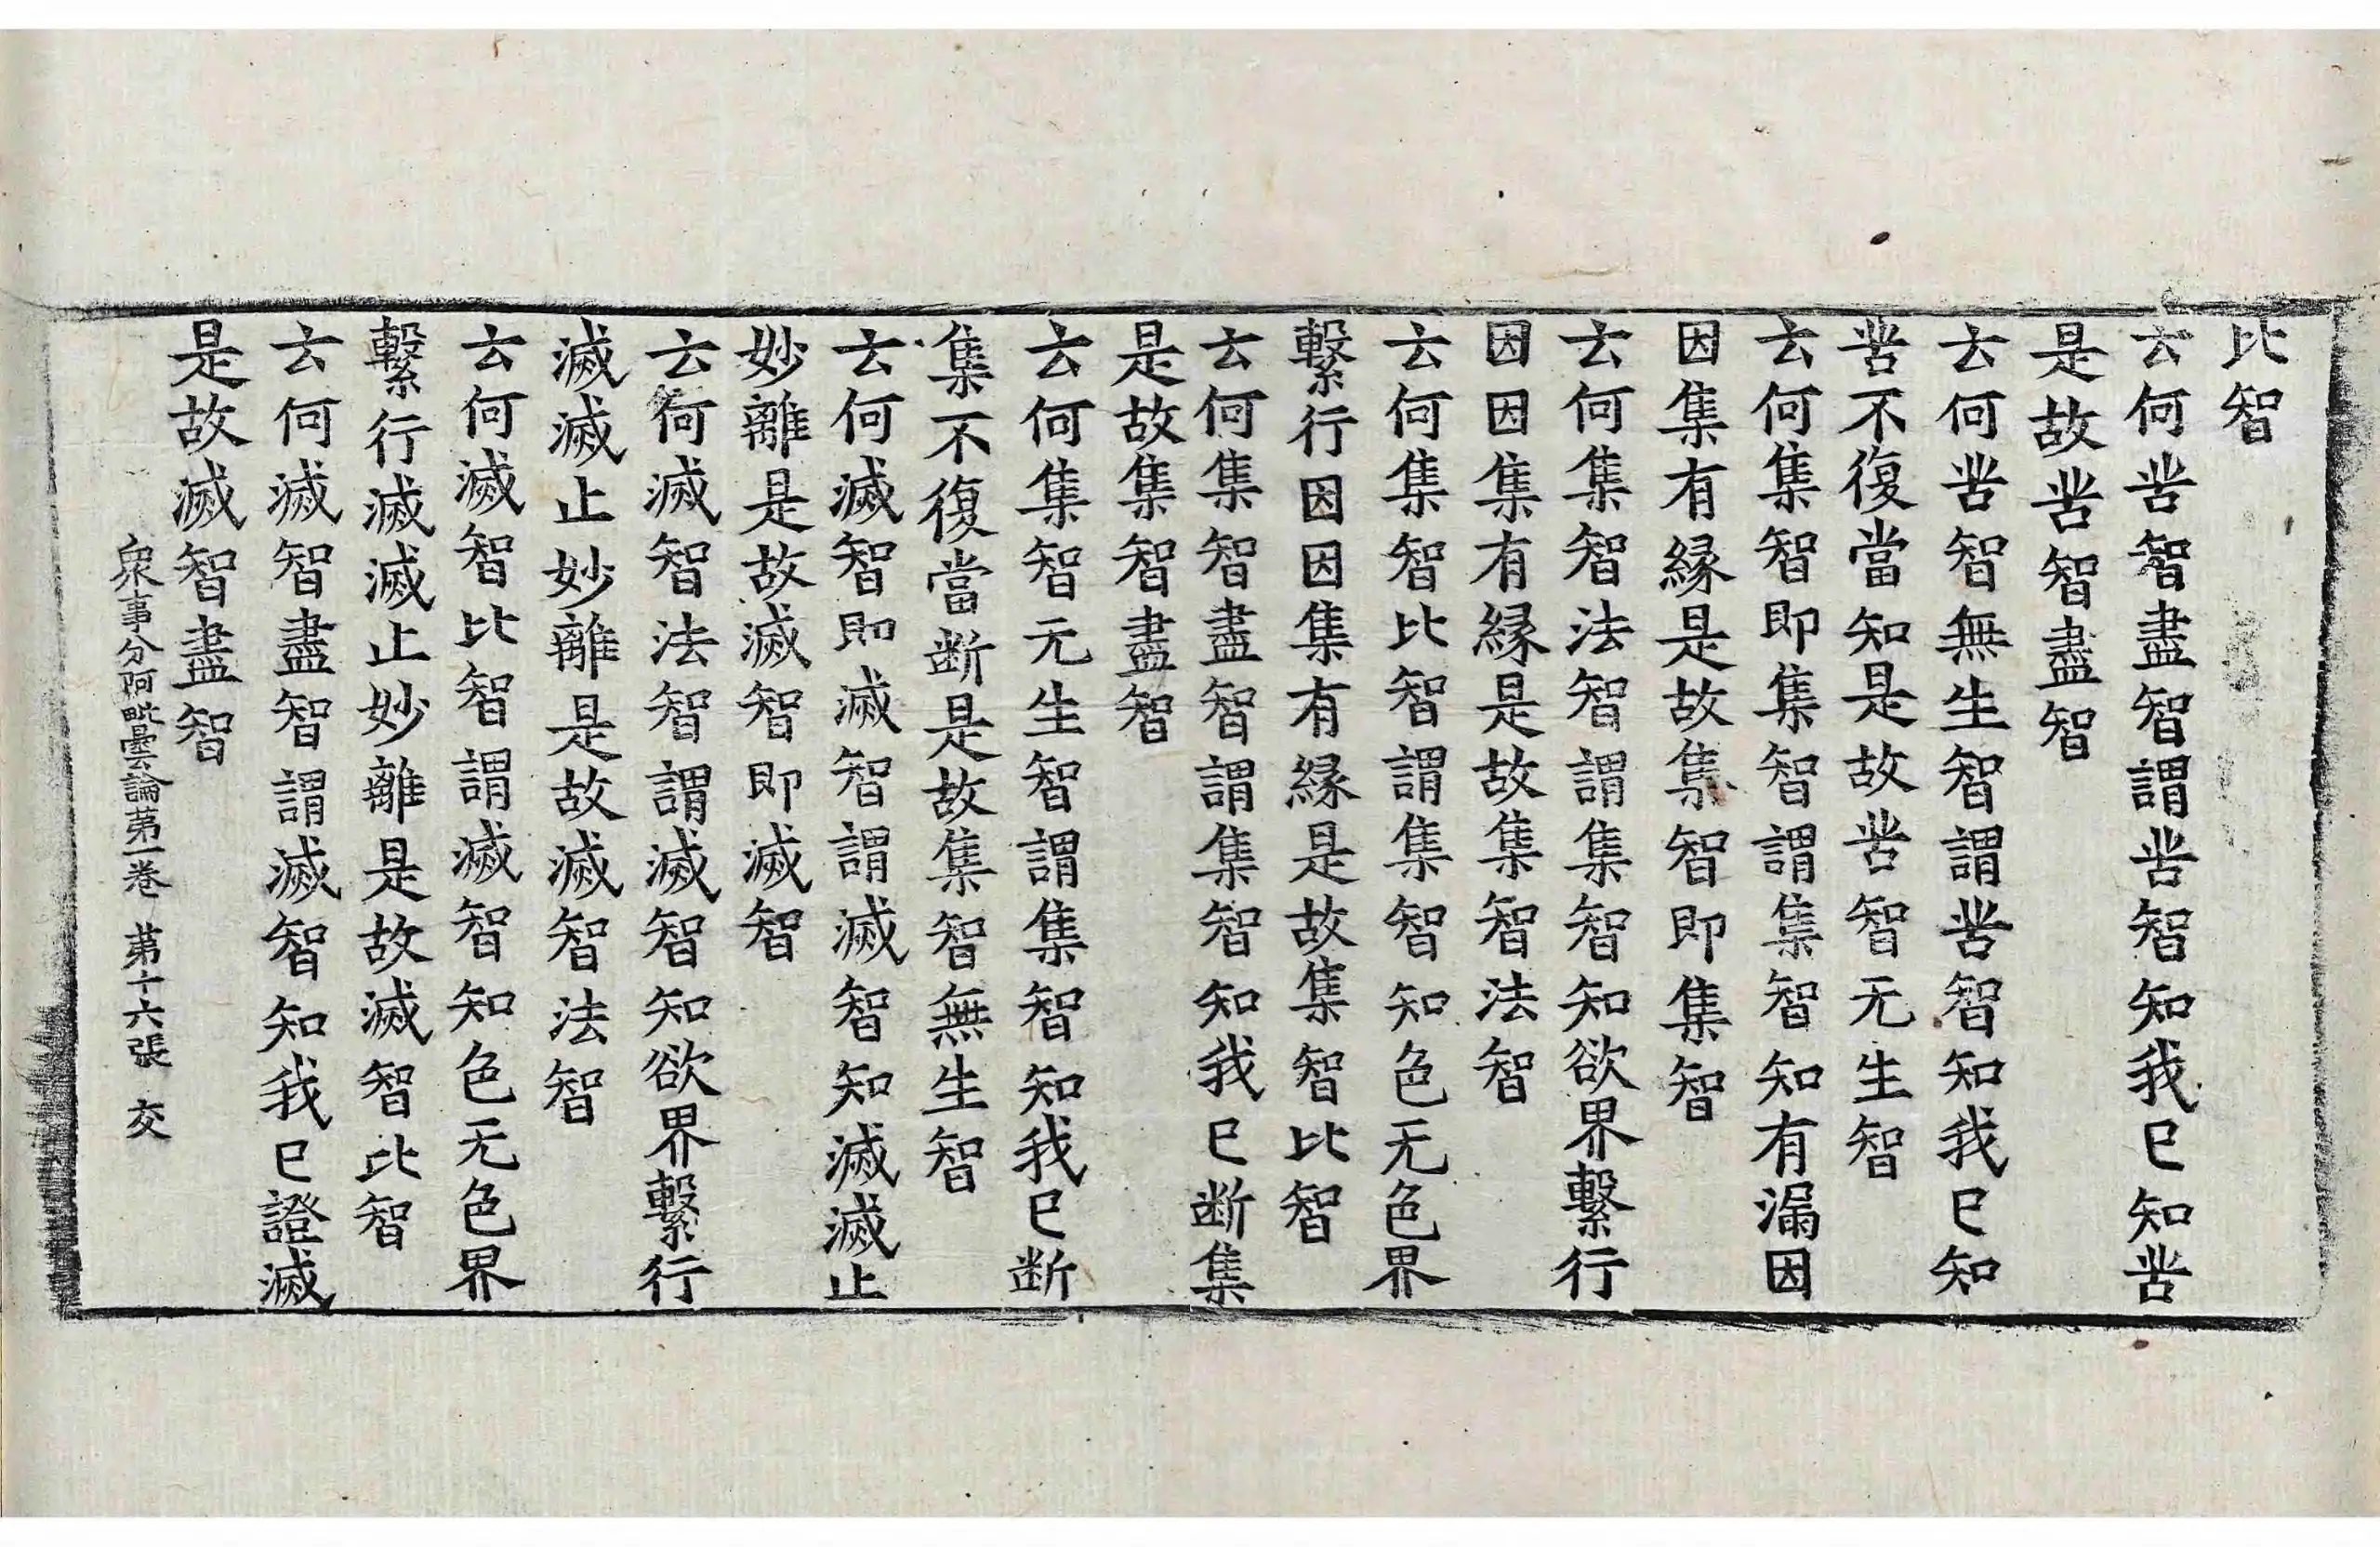 比智
云何苦智盡智謂苦智知我已知苦
是故苦智盡智
云何苦智無生智謂苦智知我已知
苦不復當知是故苦智无生智
云何集智即集智謂集智知有漏因
因集有緣是故集智即集智
云何集智法智謂集智知欲界繫行
因因集有緣是故集智法智
云何集智比智謂集智知色无色界
繫行因因集有緣是故集智比智
云何集智盡智謂集智知我已断集
是故集智盡智
云何集智无生智謂集智知我已断
集不復當断是故集智無生智
云何滅智即滅智謂滅智知滅滅止
妙離是故滅智即滅智
云何滅智法智謂滅智知欲界繫行
滅滅止妙離是故滅智法智
云何滅智比智謂滅智知色无色界
繫行滅滅止妙離是故滅智比智
云何滅智盡智謂滅智知我已證滅
是故滅智盡智
衆事分阿毗曇論第一卷 第十六張 交